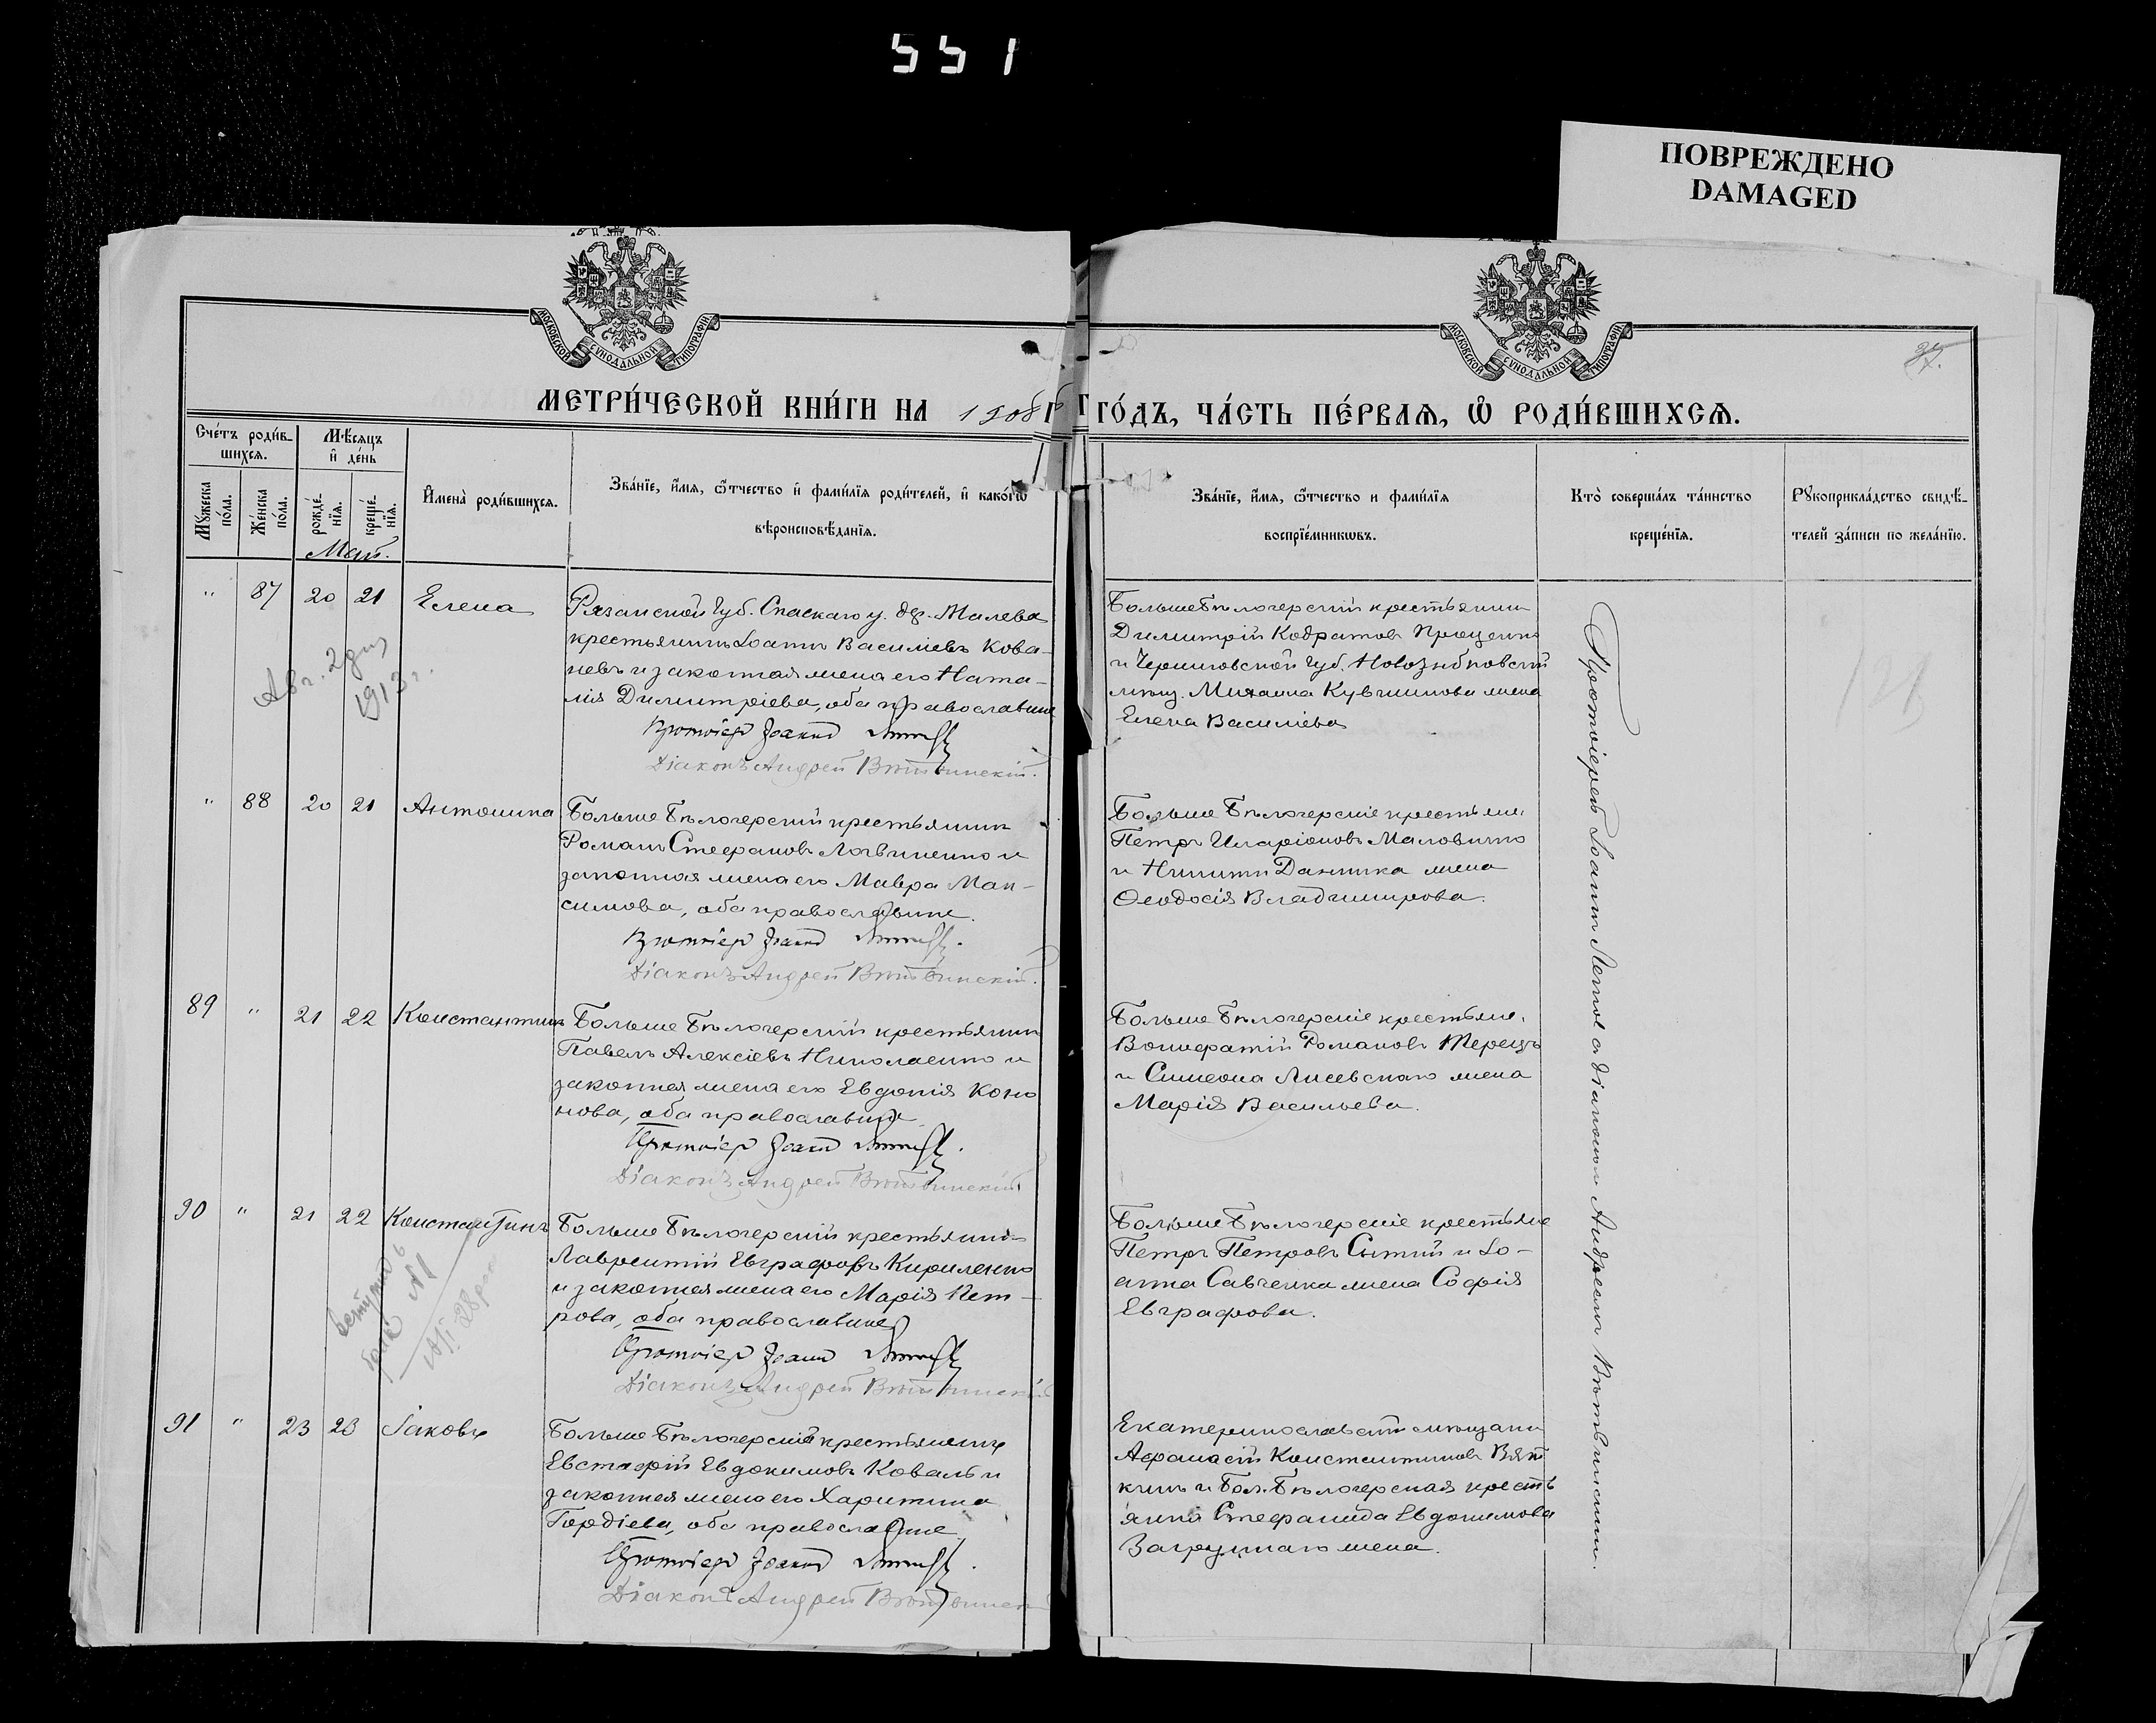 551
ПОВРЕЖДЕНО
DAMAGED
МОСКОВСКОЙ СѴНОДАЛЬНОЙ ТИПОГРАФІИ
МОСКОВСКОЙ СѴНОДАЛЬНОЙ ТИПОГРАФІИ
37.
МЕТРИ́ЧЕСКОЙ КНИ́ГИ НА 1908 Г
ГО́ДЪ, ЧА́СТЬ ПЕ́РВАѦ, Ѡ҆ РОДИ́ВШИХСѦ.
Сче́тъ роди́в-
шихсѧ.
Мѣ́сѧцъ
и҆ де́нь
Мꙋ́жеска
по́ла.
Же́нска
по́ла.
рожде́-
нїѧ.
креще́-
нїѧ.
Май.
И҆мена̀ роди́вшихсѧ.
Зва́нїе, и҆́мѧ, ѻ҆́тчество и҆ фами́лїѧ роди́телей, и҆ како́гѡ
вѣроисповѣ́данїѧ.
Зва́нїе, и҆́мѧ, ѻ҆́тчество и фами́лїѧ
воспрїе́мникѡвъ.
Кто̀ соверша́лъ та́инство
креще́нїѧ.
Рꙋкоприкла́дство свидѣ́-
телей за́писи по жела́нїю.
" 87 20 21 Елена
Рязанской Губ. Спаскаго у. др. Малева
крестьянинъ Іоаннъ Василіевъ Кова-
невъ и законная жена его Ната-
лія Димитріева, оба православные
Протоіер Іоанн
Діаконъ Андрей Вютвинскій.
Авг. 2 дня
1913 г.
БольшеБѣлозерскій крестьянинъ
Димитрій Кодратовъ Проценко
и Черниговской Губ. Новозыбковскій
мѣщ. Михаила Кувшинова жена
Елена Василіева
121
" 88 20 21 Антонина
Больше Бѣлозерскій крестьянинъ
Романъ Стефановъ Логвиненко и
законная жена его Мавра Мак-
симова, оба православные.
Протоіер Іоанн
Діаконъ Андрей Вютвинскій.
Больше Бѣлозерскіе крестьяне.
Петръ Иларіоновъ Маловичко
и Никиты Данника жена
Ѳеодосія Владимирова.
89 " 21 22 Константинъ
Больше Бѣлозерскій крестьянинъ
Павелъ Алексіевъ Николаенко и
законная жена его Евдокія Коно
нова, оба православные
Протоіер Іоанн
Діаконъ Андрей Вютвинскій
Больше Бѣлозерскіе крестьяне.
Вонифатій Романовъ Терецъ
и Симеона Лисевскаго жена
Марія Васильева.
90 " 21 22 Константинъ
Больше Бѣлозерскій крестьянинъ
Лаврентій Евграфовъ Кириленко
и законная жена его Марія Пет-
рова, оба православные
Протоіер Іоанн
Діаконъ Андрей Вютвинскій
Больше Бѣлозерскіе крестьяне
Петръ Петровъ Сытый и Іо-
анна Савченка жена Софія
Евграфова.
91 " 23 23 Іаковъ
Больше Бѣлозерскій крестьянинъ
Евстафій Евдокимовъ Коваль и
законная жена его Харитина
Гордіева, оба православные
Протоіер Іоанн
Діаконъ Андрей
Екатеринославскій мѣщанин
Афанасій Константиновъ Вят
кинъ и Бол. Бѣлозерская кресть
янка Стефанида Евдокимова
Загруднаго жена.
Протоіерей Іоаннъ с діакономъ Андреемъ Вютвинскимъ.